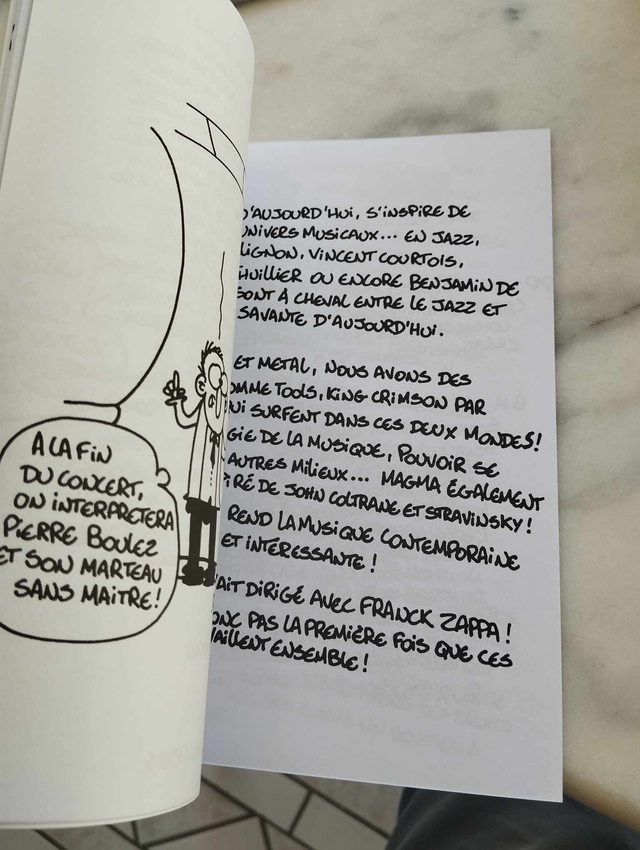 À LA FIN
DU CONCERT,
ON INTERPRETERA
PIERRE BOULEZ
ET SON MARTEAU
SANS MAITRE!
D'AUJOURD'HUI, S'INSPIRE DE
UNIVERS MUSICAUX... EN JAZZ,
VINCENT COURTOIS,
OU ENCORE BENJAMIN DE
SONT À CHEVAL ENTRE LE JAZZ ET
SAVANTE D'AUJOURD'HUI.
ET METAL, NOUS AVONS DES
TOOLS, KING CRIMSON PAR
SURFENT DANS CES DEUX MONDES!
DE LA MUSIQUE, POUVOIR SE
AUTRES MILIEUX... MAGMA ÉGALEMENT
DE JOHN COLTRANE ET STRAVINSKY!
REND LA MUSIQUE CONTEMPORAINE
ET INTERESSANTE!
DIRIGÉ AVEC FRANCK ZAPPA!
PAS LA PREMIÈRE FOIS QUE CES
ENSEMBLE!